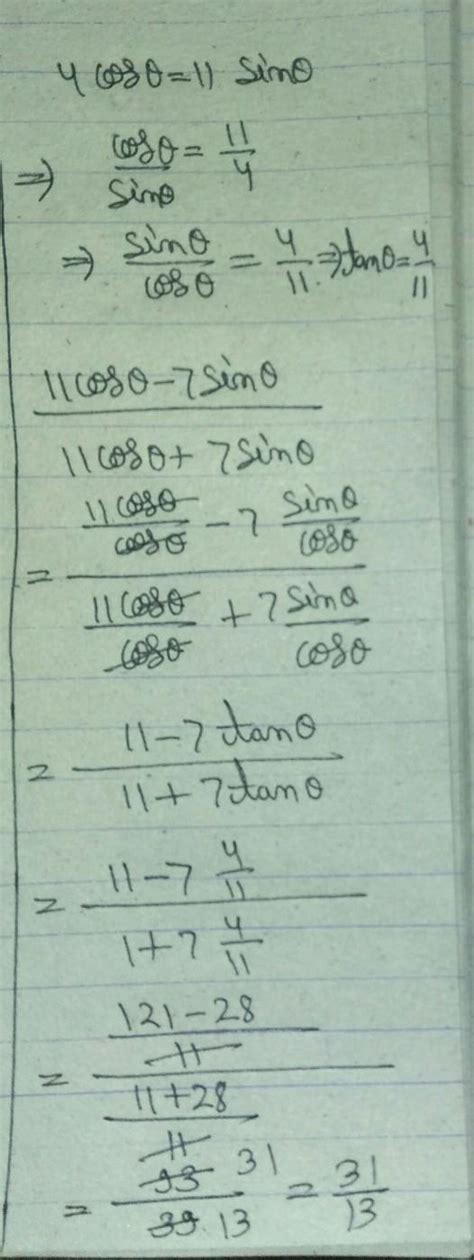 4 cosθ = 11 sinθ
⇒ cosθ/sinθ = 11/4
⇒ sinθ/cosθ = 4/11 ⇒ tanθ = 4/11
11cosθ - 7sinθ
11cosθ + 7sinθ
11cosθ/cosθ - 7 sinθ/cosθ
=
11cosθ/cosθ + 7 sinθ/cosθ
11 - 7tanθ
=
11 + 7tanθ
11 - 7 4/11
=
1 + 7 4/11
121 - 28
11
=
11 + 28
11
93 31
= = 31/13
39. 13